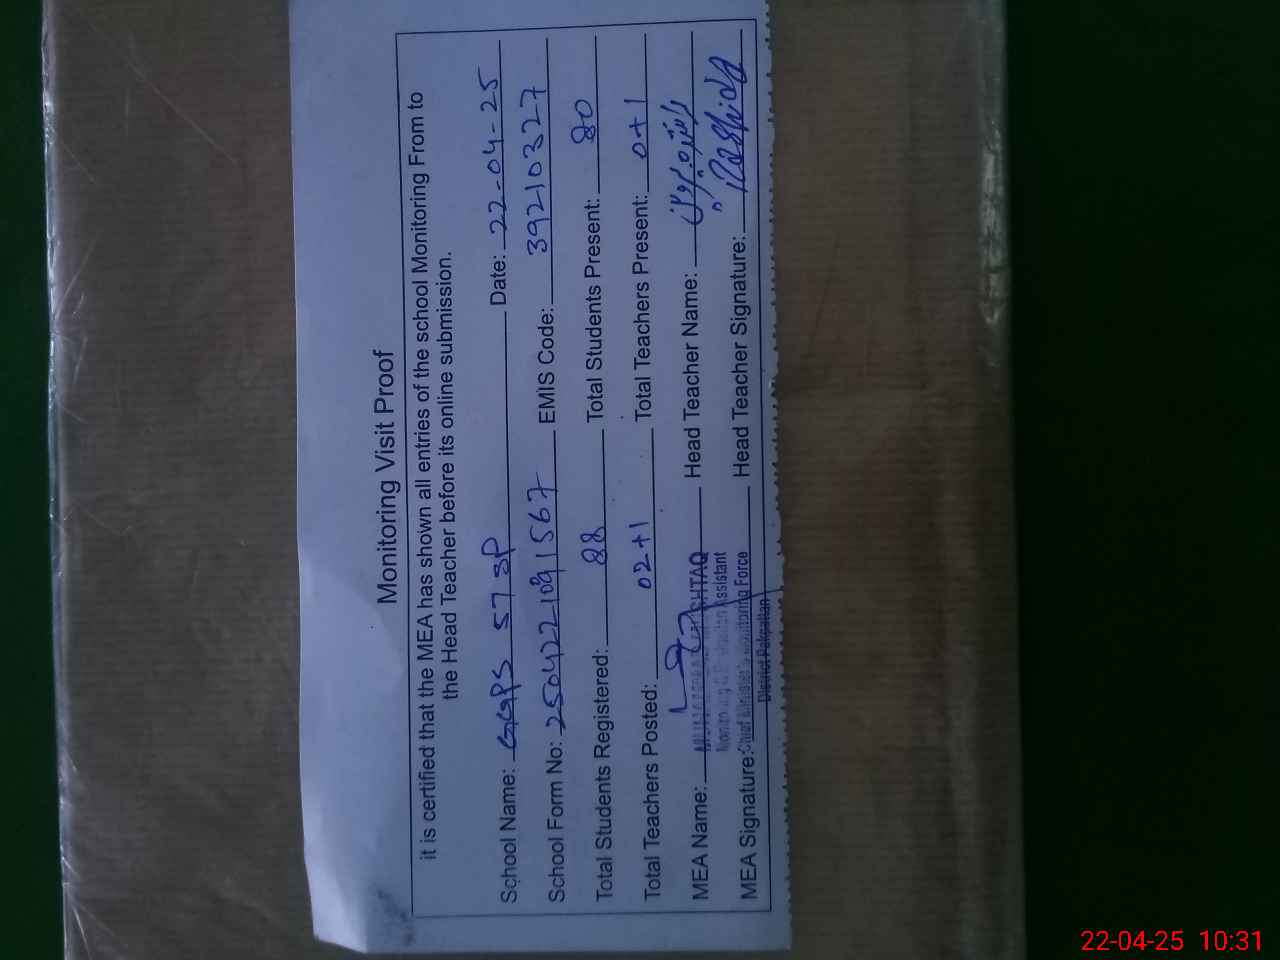 Monitoring Visit Proof
it is certified that the MEA has shown all entries of the school Monitoring From to
the Head Teacher before its online submission.
School Name: GGPS 57 SP Date: 22-04-25
School Form No: 2504221091567 EMIS Code: 39210327
Total Students Registered: 88 Total Students Present: 80
Total Teachers Posted: 02+1 Total Teachers Present: 0+1
MEA Name: MUHAMMAD ISHTAQ Head Teacher Name: راشدہ پروین
Monitoring & Evaluation Assistant
MEA Signature: Chief Minister's Monitoring Force Head Teacher Signature: Rashida
District Pakpattan
22-04-25 10:31